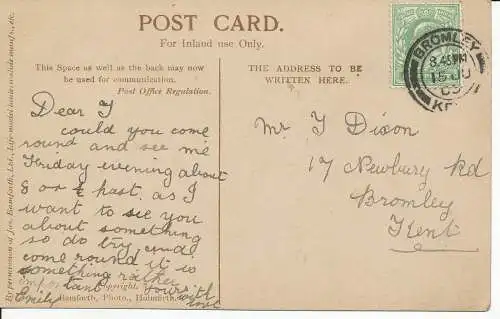 POST CARD.
For Inland use Only.
This Space as well as the back may now
be used for communication.
Post Office Regulation.
THE ADDRESS TO BE
WRITTEN HERE.
Dear J
could you come
round and see me
Friday evening about
8 or ½ past. as I
want to see you
about something
so do try and
come round it is
something rather
important yours with
Emily love
Copyright.
Bamforth, Photo., Holmfirth.
By permission of Jas. Bamforth, Ltd., Life-model lantern slide manufs., etc.
Mr J Dixon
17 Newbury Rd
Bromley
Kent
BROMLEY
8.45 PM
15 JU